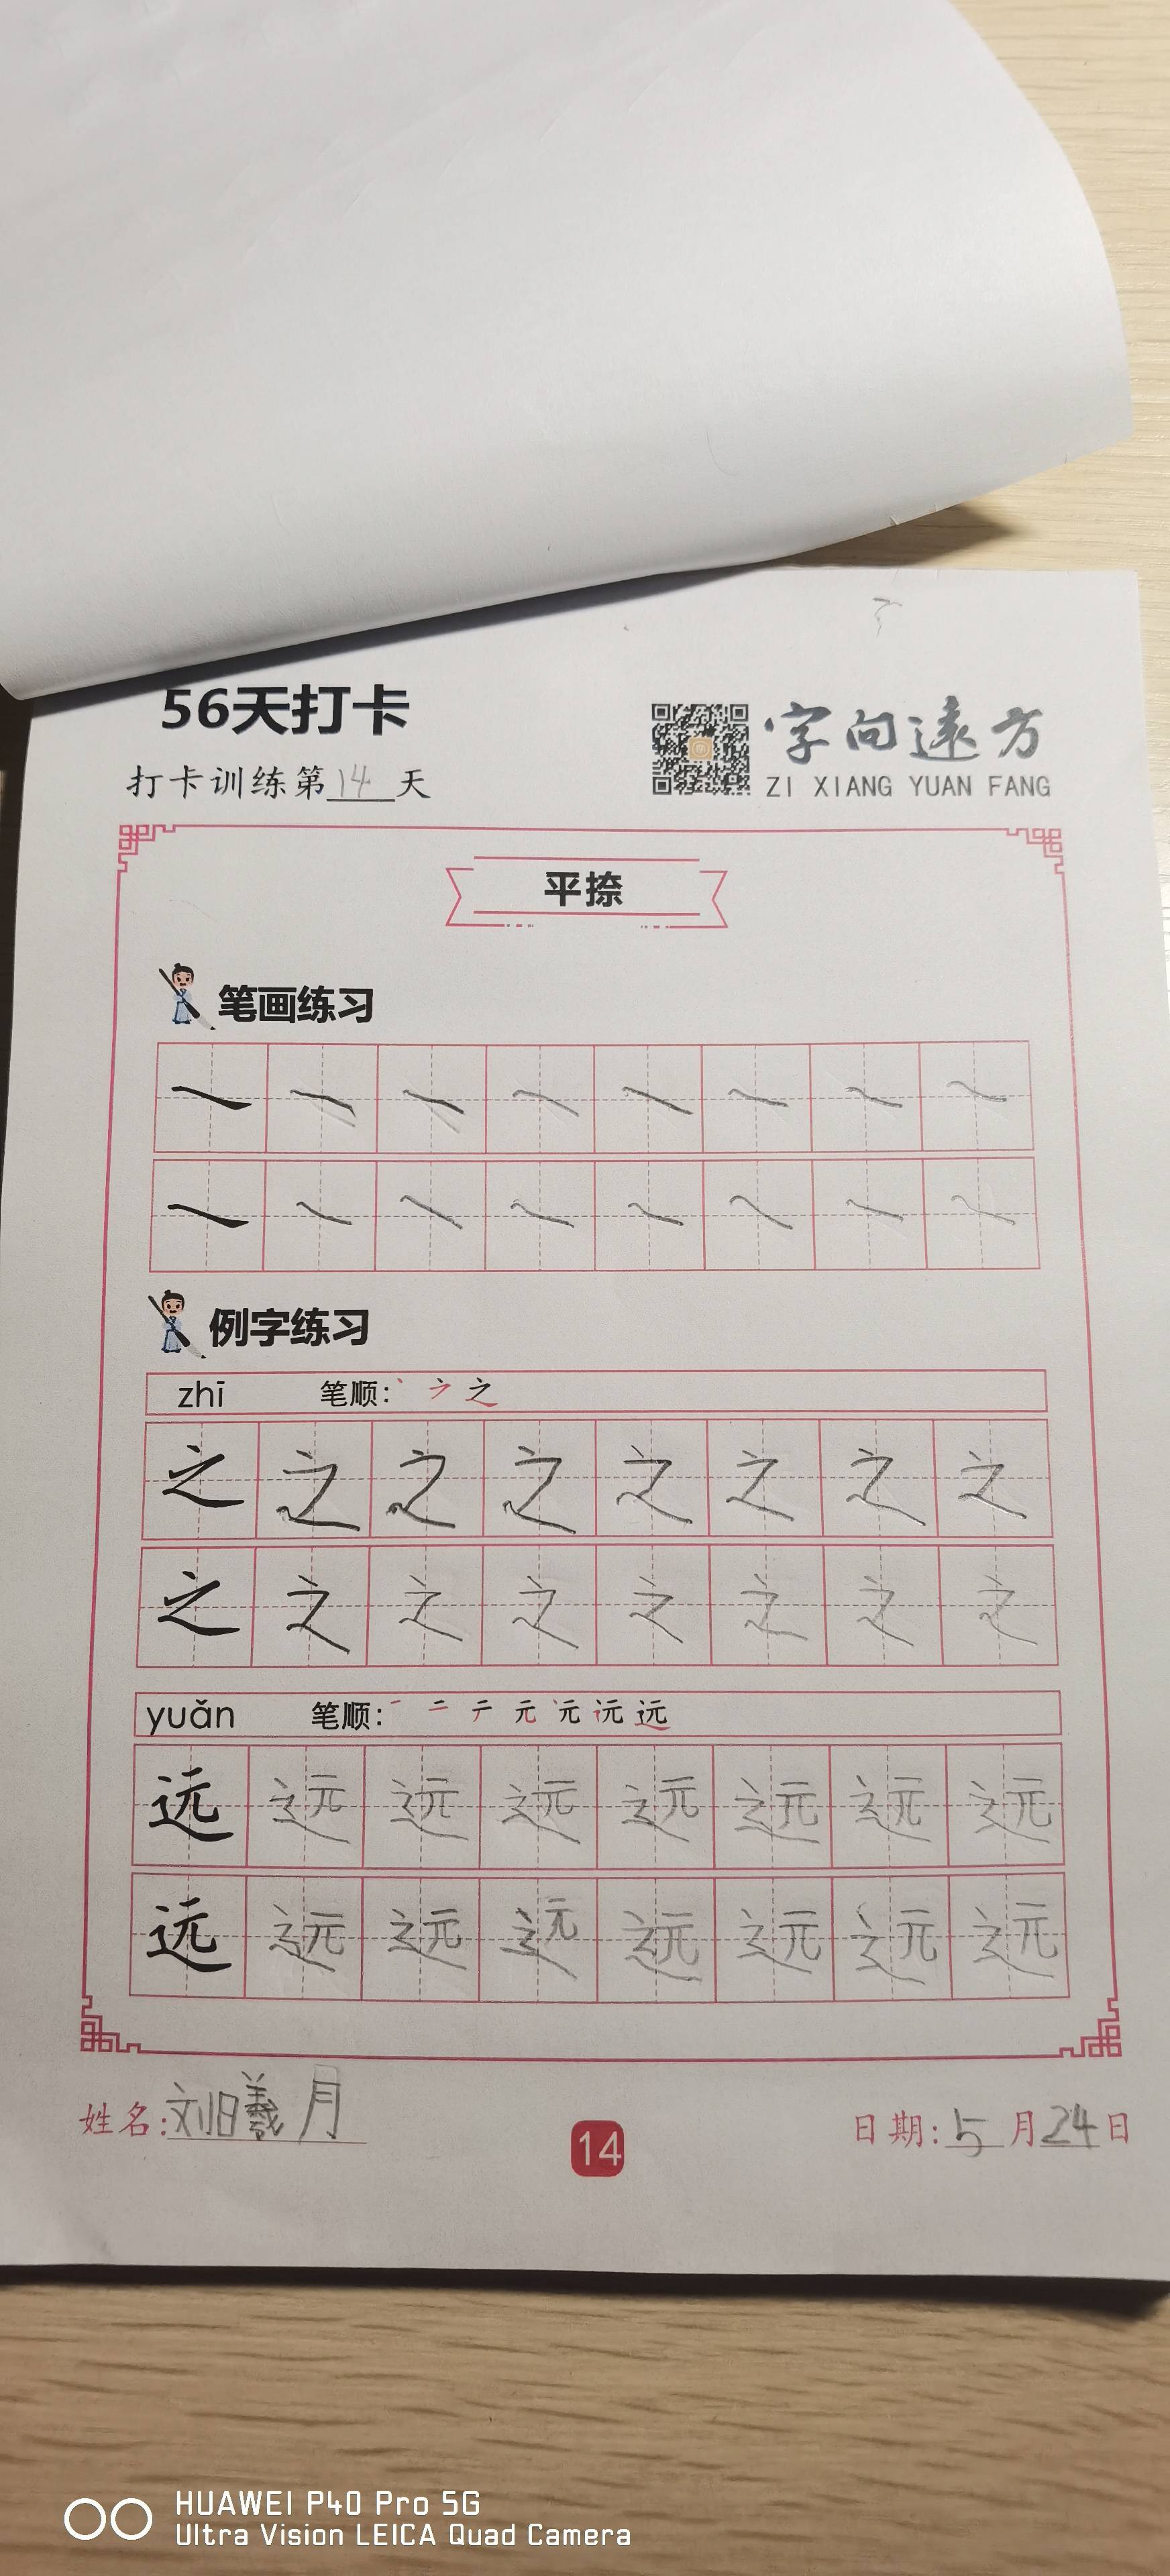 56天打卡
打卡训练第14天
字向遠方
ZI XIANG YUAN FANG
平捺
笔画练习
例字练习
zhī 笔顺: 丶 ㇇ 之
之 之 之 之 之 之 之 之
之 之 之 之 之 之 之 之
yuǎn 笔顺: 一 二 テ 元 远
远 远 远 远 远 远 远 远
远 远 远 远 远 远 远 远
姓名:刘曦月
14
日期:5月24日
HUAWEI P40 Pro 5G
Ultra Vision LEICA Quad Camera